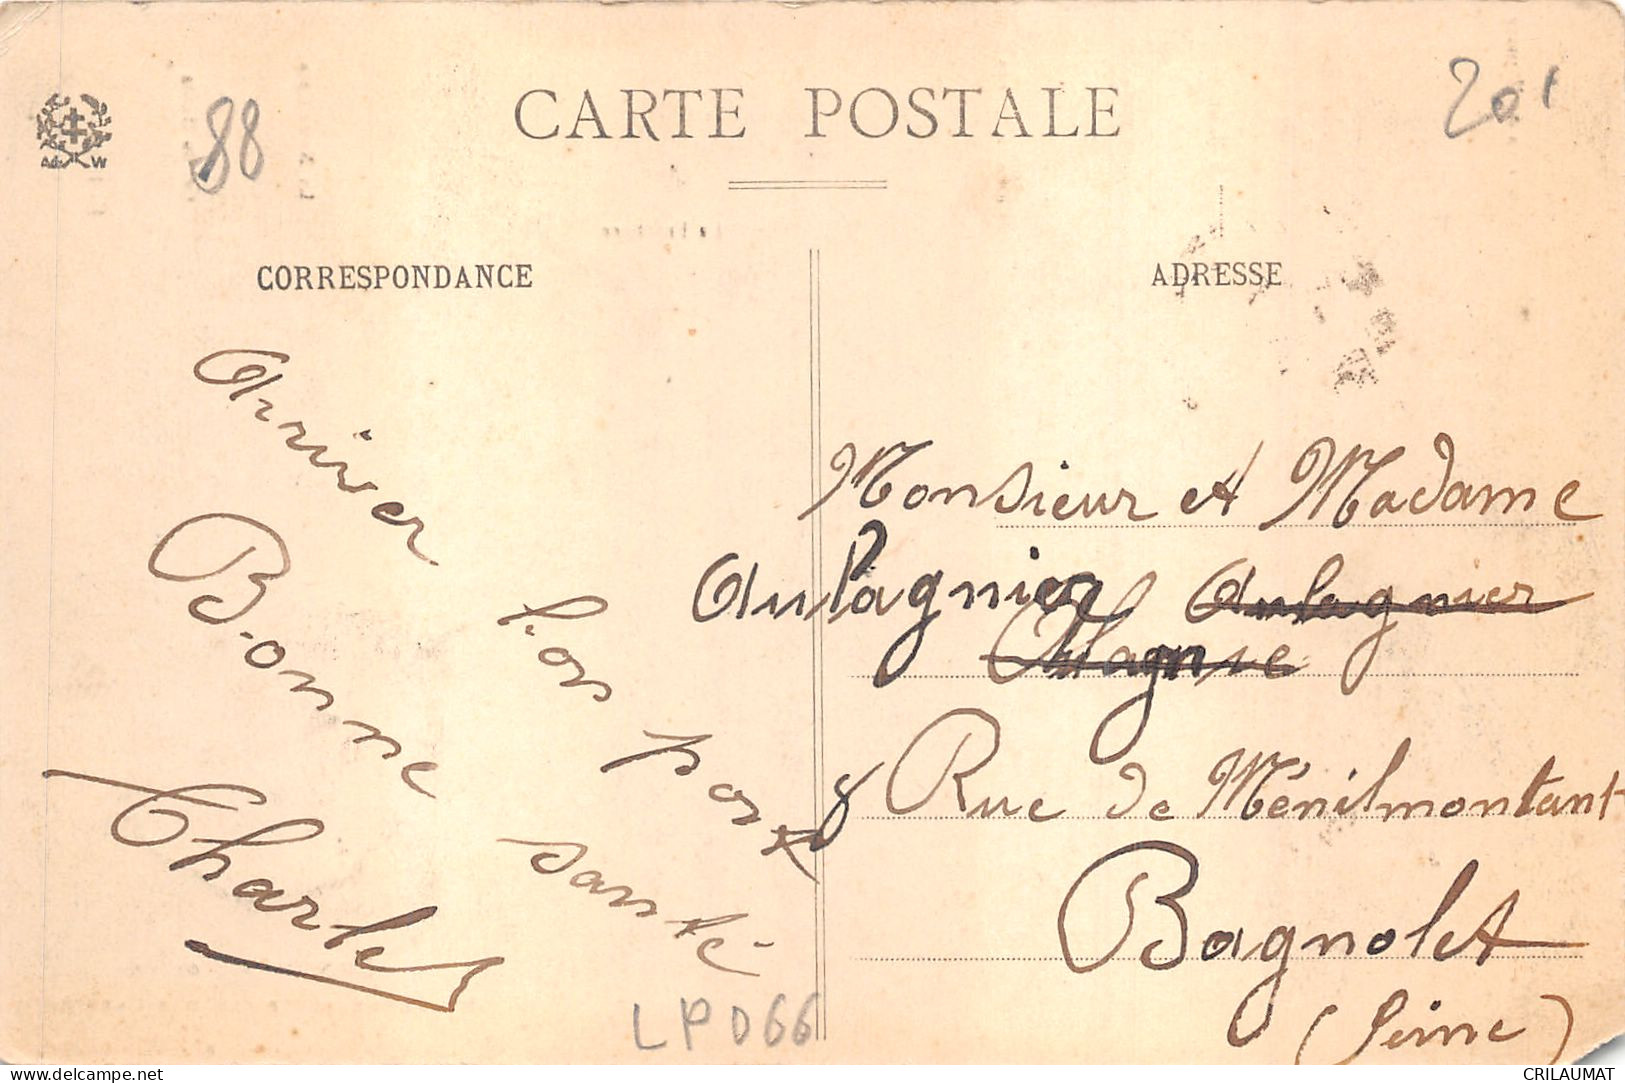 CARTE POSTALE
88
201
A W
CORRESPONDANCE
ADRESSE
Arriver bon port
Bonne santé
Charles
Monsieur et Madame
Aulagnier Aulagnier
8 Rue de Ménilmontant
Bagnolet
(Seine)
LPD66
www.delcampe.net
CRILAUMAT